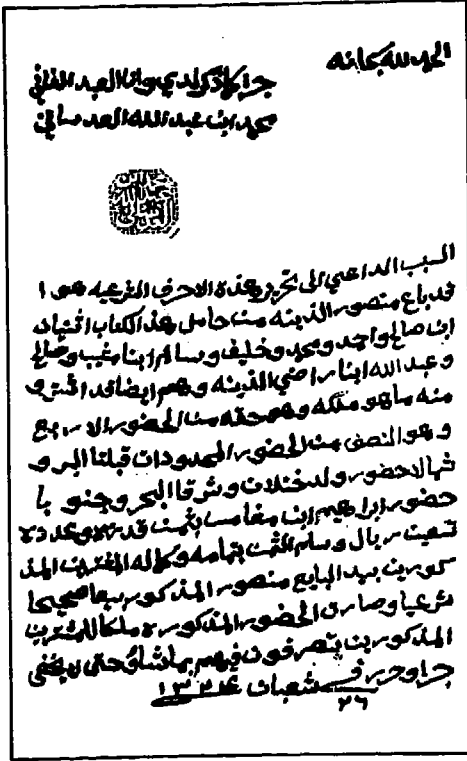 الحمد لله سبحانه
جرا كما ذكر لدي وانا العبد الفاني
محمد ابن عبد الله العدساني
السبب الداعي الى تحرير هذه الاحرف الشرعيه هو ا
قد باع منصور الذينه من حامل هذا الكتاب اثنيان
ابن صالح واحمد ومحمد وخليف وسالم ابنا مغيب وصالح
وعبد الله ابنا راضي الذينه وهم ايضا قد اشترو
منه ما هو ملكه وهو حقه من الحضور الاربع
وهو النصف من الحضور المحدودات قبلتا البر و
شمالا حضور ولد ختلان وشرقا البحر وجنوبا
حضور ابراهيم ابن مغامس بثمن قدره وعدده
تسعين ريال وسلم الثمن بتمامه وكماله المشترين المذ
كورين بيد البايع منصور المذكور بيعا صحيحا
شرعيا وصارت الحضور المذكوره ملكا للمشترين
المذكورين يتصرفون فيهم بما شاؤ حتى لا يخفى
جرا وحرر في ٢٦ شعبان ١٣٢٤